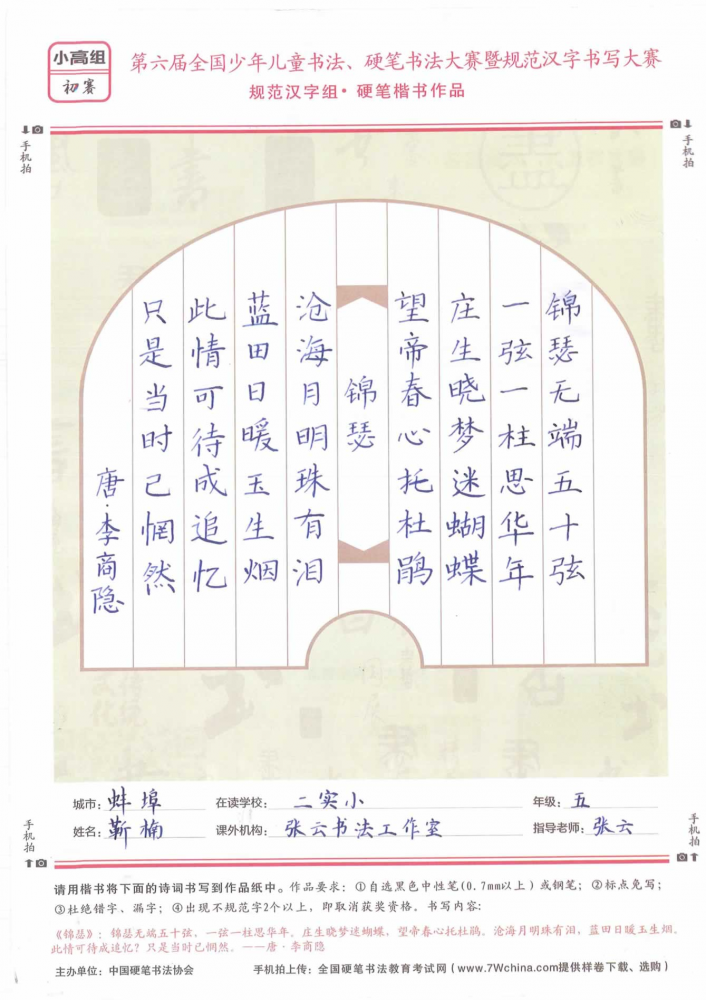 小高组
初赛
第六届全国少年儿童书法、硬笔书法大赛暨规范汉字书写大赛
规范汉字组·硬笔楷书作品
手机拍
手机拍
锦瑟无端五十弦
一弦一柱思华年
庄生晓梦迷蝴蝶
望帝春心托杜鹃
锦瑟
沧海月明珠有泪
蓝田日暖玉生烟
此情可待成追忆
只是当时已惘然
唐·李商隐
城市：蚌埠 在读学校：二实小 年级：五
姓名：靳楠 课外机构：张云书法工作室 指导老师：张云
手机拍
手机拍
请用楷书将下面的诗词书写到作品纸中。作品要求：①自选黑色中性笔(0.7mm以上）或钢笔；②标点免写；
③杜绝错字、漏字；④出现不规范字2个以上，即取消获奖资格。书写内容：
《锦瑟》：锦瑟无端五十弦，一弦一柱思华年。庄生晓梦迷蝴蝶，望帝春心托杜鹃。沧海月明珠有泪，蓝田日暖玉生烟。
此情可待成追忆？只是当时已惘然。——唐·李商隐
主办单位：中国硬笔书法协会 手机拍上传：全国硬笔书法教育考试网（www.7Wchina.com提供样卷下载、选购）